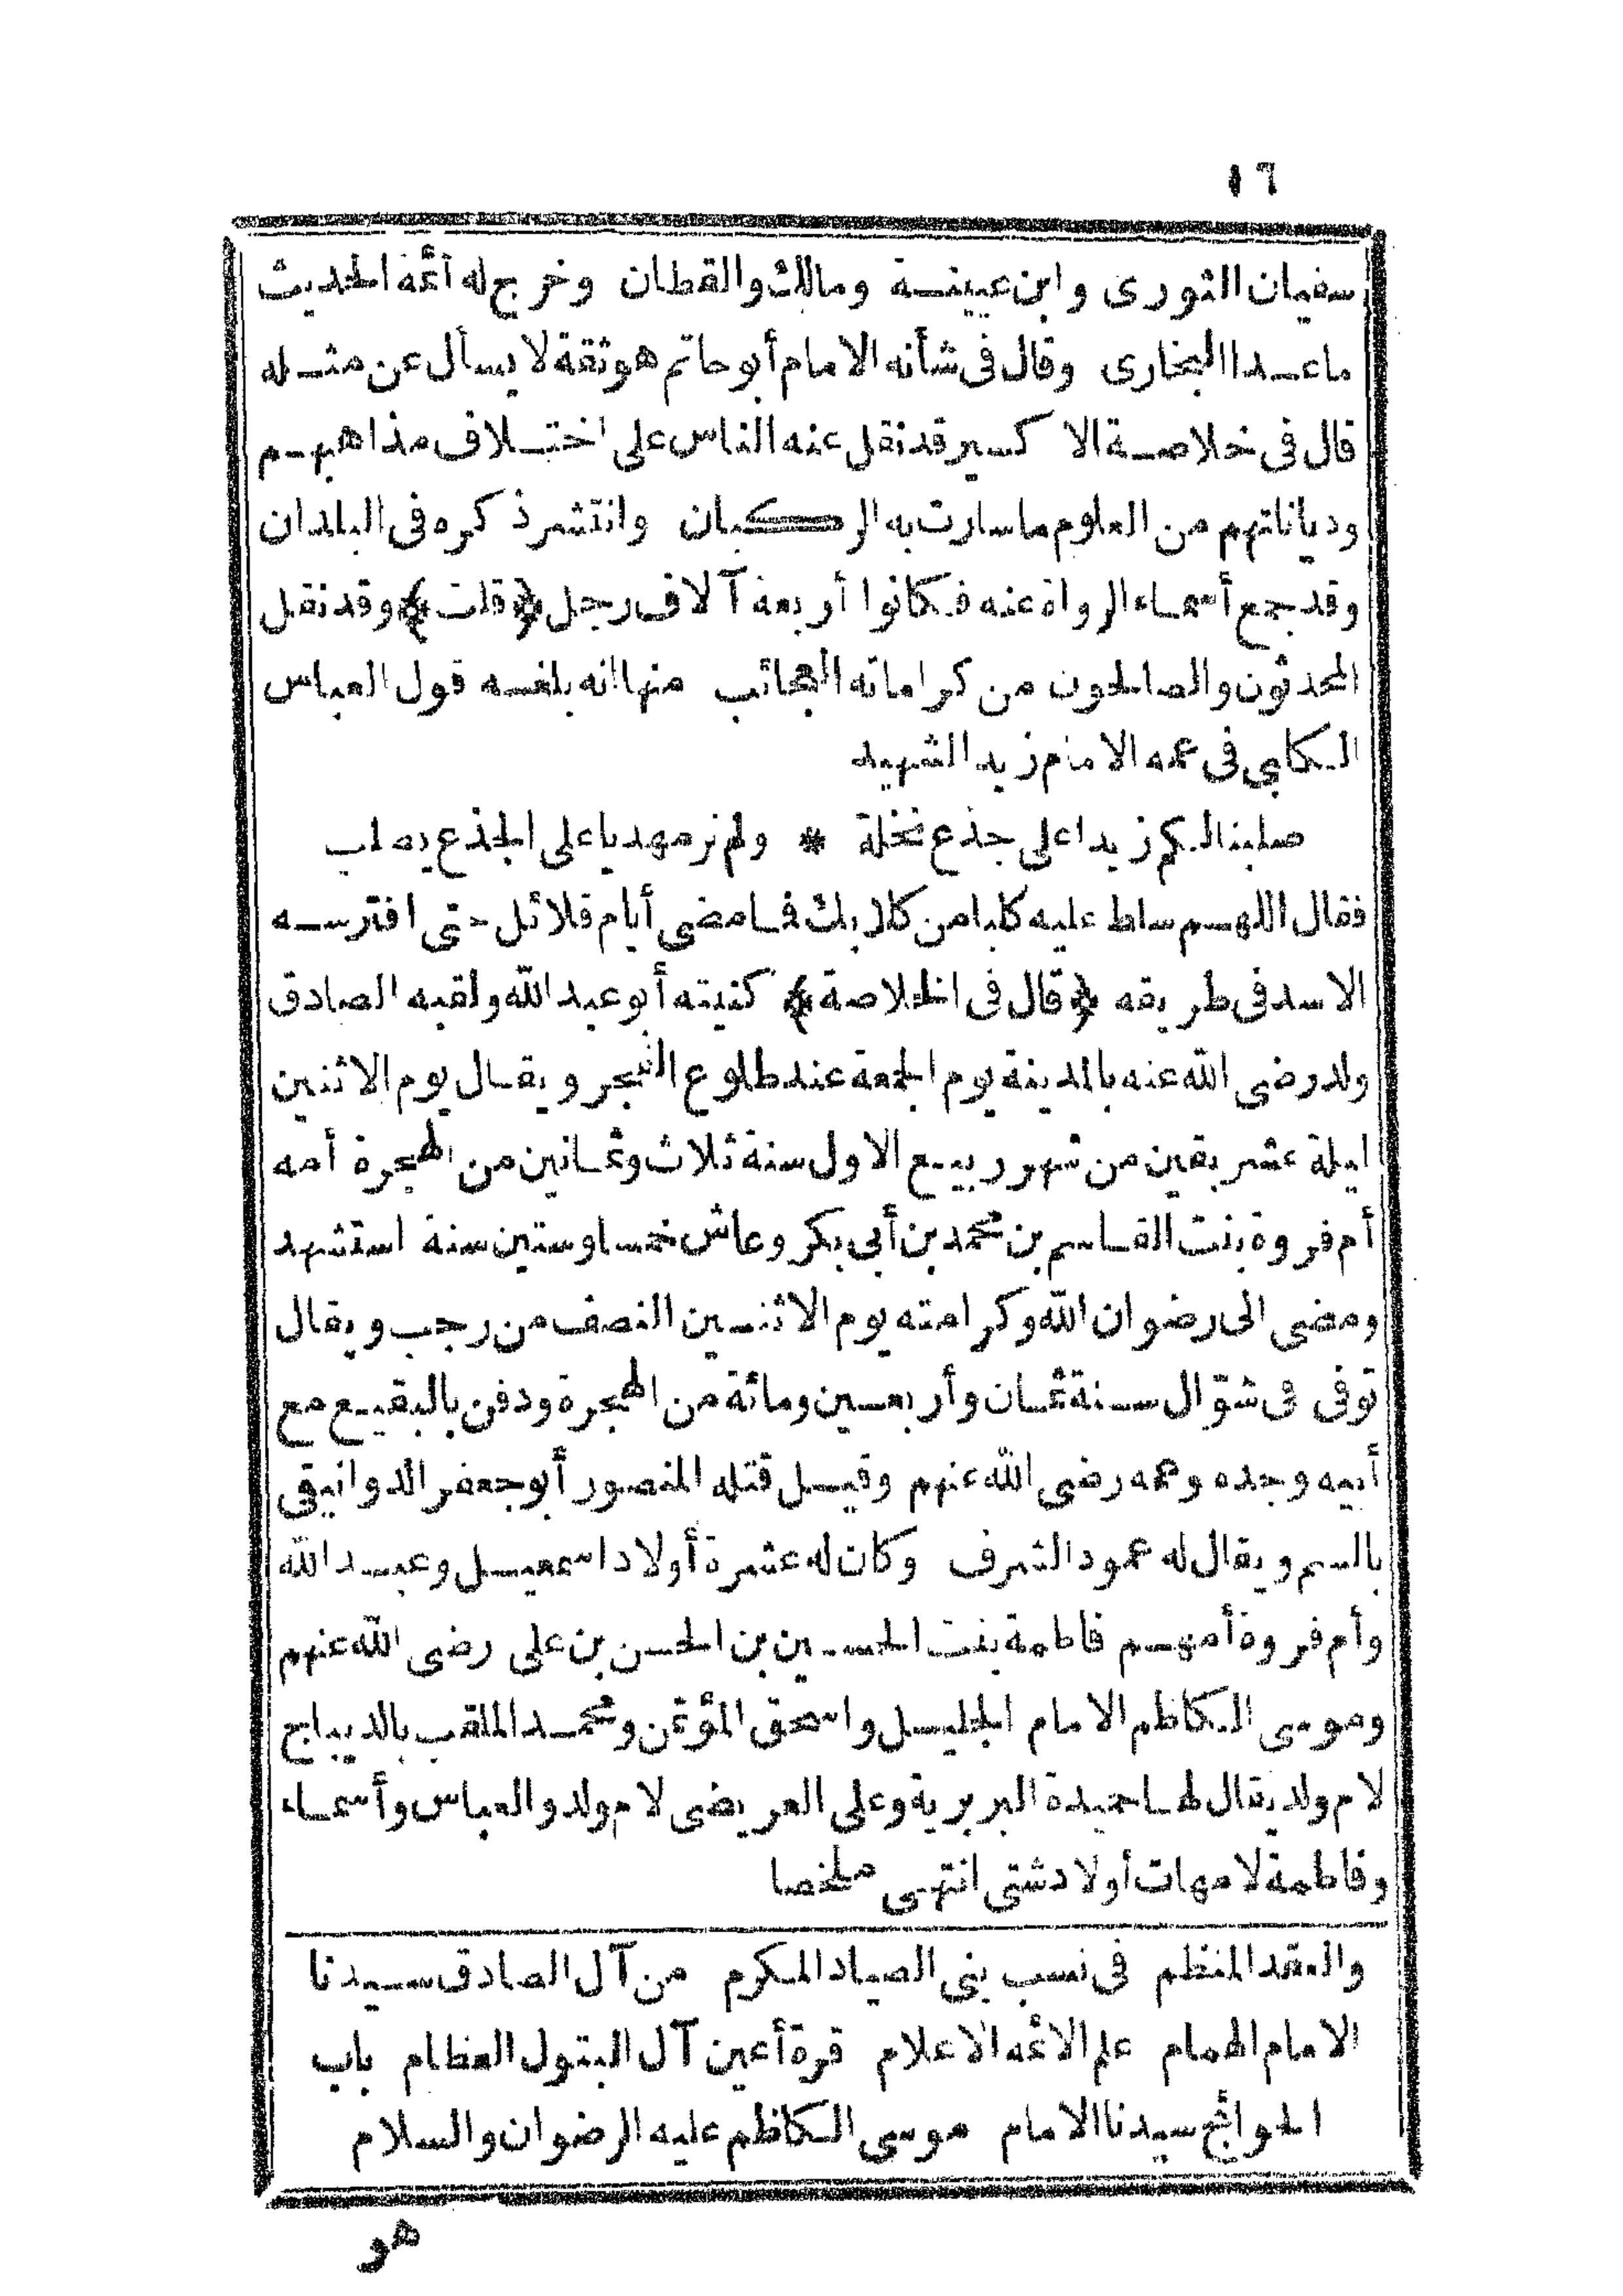 ١٦
سفيان الثورى وابن عيينة ومالك والقطان وخرج له أئمة الحديث
ماعدا البخارى وقال فى شأنه الامام أبو حاتم هو ثقة لا يسأل عن مثله
قال فى خلاصة الا كسير قد نقل عنه الناس على اختلاف مذاهبهم
ودياناتهم من العلوم ما سارت به الركبان وانتشر ذكره فى البلدان
وقد جمع أسماء الرواة عنه فكانوا أربعة آلاف رجل ﴿قلت﴾ وقد نقل
المحدثون والصالحون من كراماته العجائب منها انه بلغه قول العباس
الكلبى فى عمه الامام زيد الشهيد
صلبنا لكم زيدا على جذع نخلة * ولم نر مهديا على الجذع يصلب
فقال اللهم سلط عليه كلبا من كلابك فما مضى أيام قلائل حتى افترسه
الاسد فى طريقه ﴿قال فى الخلاصة﴾ كنيته أبو عبد الله ولقبه الصادق
ولد رضى الله عنه بالمدينة يوم الجمعة عند طلوع الفجر ويقال يوم الاثنين
ليلة عشر بقين من شهر ربيع الاول سنة ثلاث وثمانين من الهجرة أمه
أم فروة بنت القاسم بن محمد بن أبى بكر وعاش خمسا وستين سنة استشهد
ومضى الى رضوان الله وكرامته يوم الاثنين النصف من رجب ويقال
توفى فى شوّال سنة ثمان وأربعين ومائة من الهجرة ودفن بالبقيع مع
أبيه وجده وعمه رضى الله عنهم وقيل قتله المنصور أبو جعفر الدوانيقى
بالسم ويقال له عمود الشرف وكان له عشرة أولاد اسمعيل وعبد الله
وأم فروة أمهم فاطمة بنت الحسين بن الحسن بن على رضى الله عنهم
وموسى الكاظم الامام الجليل واسحق المؤتمن ومحمد الملقب بالديباج
لام ولد يقال لها حميدة البربرية وعلى العريضى لام ولد والعباس وأسماء
وفاطمة لامهات أولاد شتى انتهى ملخصا
والعقد المنظم فى نسب بنى الصياد المكرم من آل الصادق سيدنا
الامام الهمام علم الائمة الاعلام قرة أعين آل البتول العظام باب
الحوائج سيدنا الامام موسى الكاظم عليه الرضوان والسلام
هو